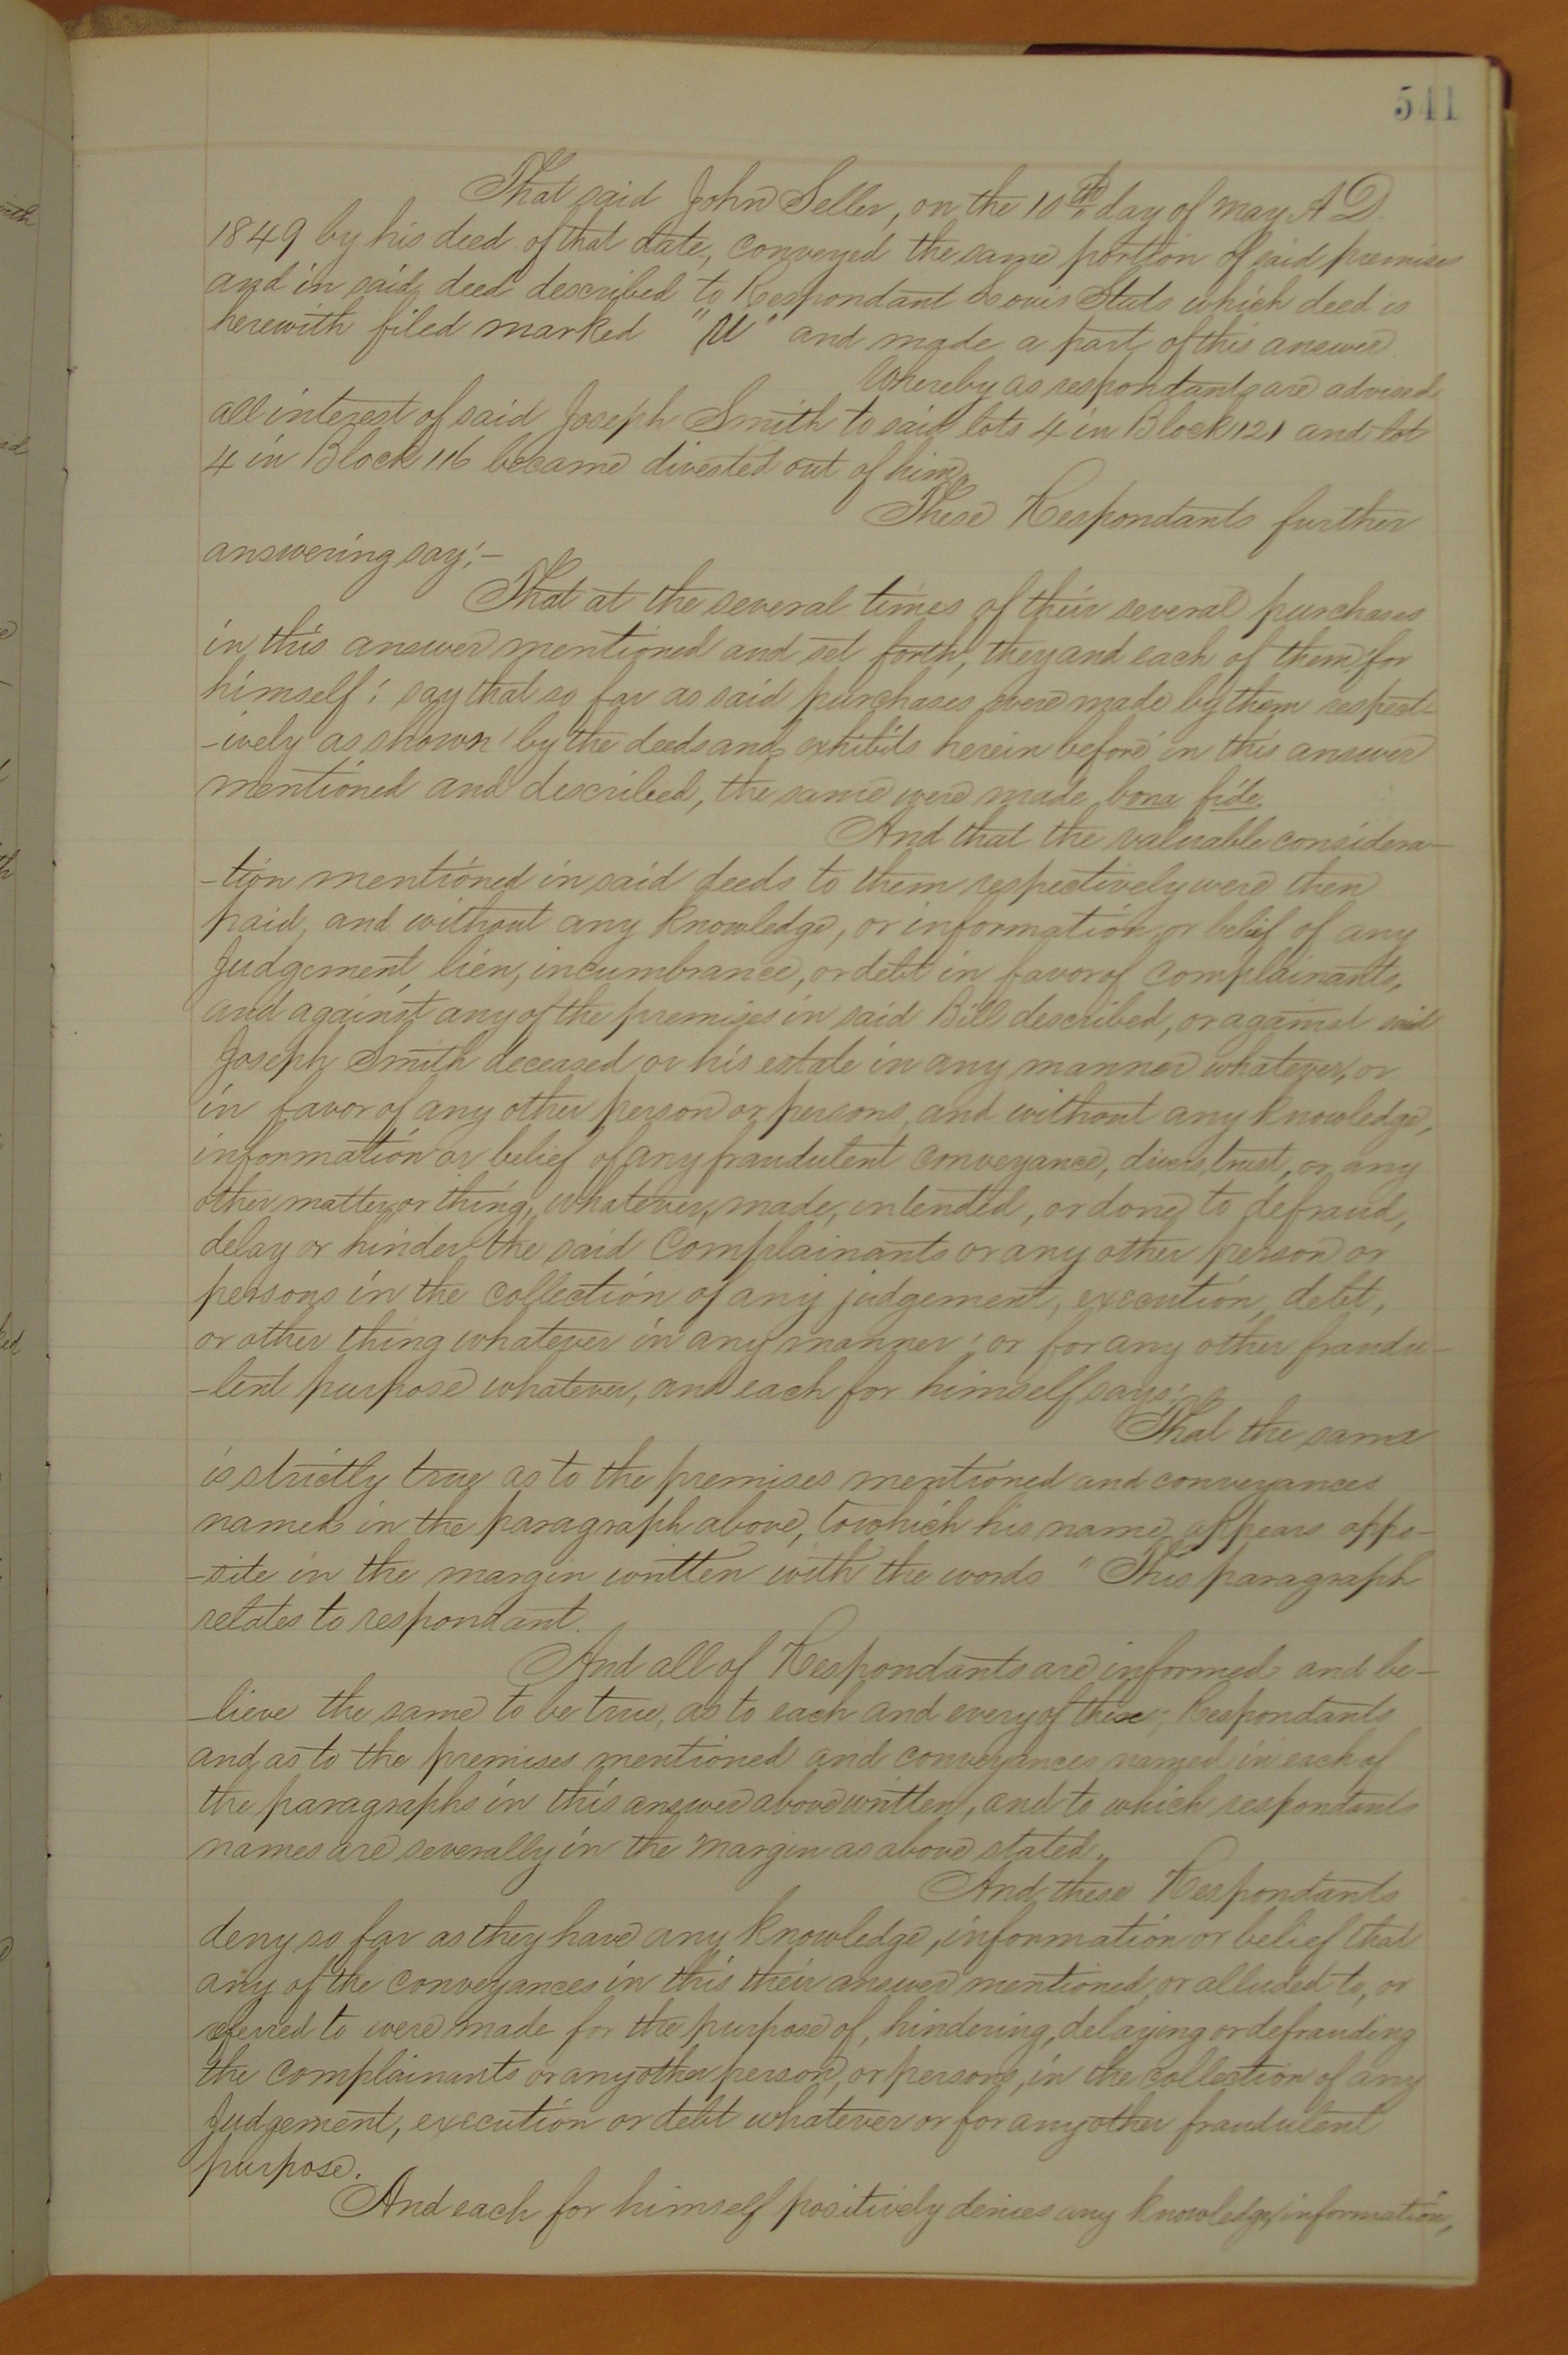 541
That said John Seller, on the 10th day of May A D.
1849 by his deed of that date, conveyed the same portion of said premises
and in said deed described to Respondant Louis Stuts which deed is
herewith filed marked "U" and made a part of this answer
Whereby as respondants are advised
all interest of said Joseph Smith to said lots 4 in Block 121 and lot
4 in Block 116 became divested out of him,
These Respondants further
answering say:—
That at the several times of their several purchases
in this answer mentioned and set forth, they and each of them, for
himself; say that so far as said purchases were made by them respect-
-ively as shown by the deeds and exhibits herein before in this answer
mentioned and described, the same were made bona fide.
And that the valuable considera-
-tion mentioned in said deeds to them respectively were then
paid, and without any knowledge, or information or belief of any
Judgement, lien, incumbrance, or debt in favor of Complainants,
and against any of the premises in said Bill described, or against said
Joseph Smith deceased or his estate in any manner whatever, or
in favor of any other person or persons, and without any knowledge,
information or belief of any fraudulent conveyance, divers, trust, or any
other matter or thing, whatever, made, intended, or done, to defraud,
delay or hinder, the said Complainants or any other person or
persons in the collection of any judgement, execution, debt,
or other thing whatever in any manner; or for any other fraudu-
-lent purpose whatever, and each for himself says:
That the same
is strictly true as to the premises mentioned and conveyances
named in the paragraph above, to which his name appears oppo-
-site in the margin written with the words "This paragraph
relates to respondant.
And all of Respondants are informed and be-
-lieve the same to be true, as to each and every of these; Respondants
and as to the premises mentioned and conveyances named in each of
the paragraphs in this answer above written, and to which respondants
names are severally in the margin as above stated.
And these Respondants
deny so far as they have any knowledge, information or belief that
any of the conveyances in this their answer mentioned, or alluded to, or
referred to were made for the purpose of, hindering, delaying or defrauding
the complainants or any other person, or persons, in the collection of any
Judgement, execution or debt whatever or for any other fraudulent
purpose.
And each for himself positively denies any knowledge, information,